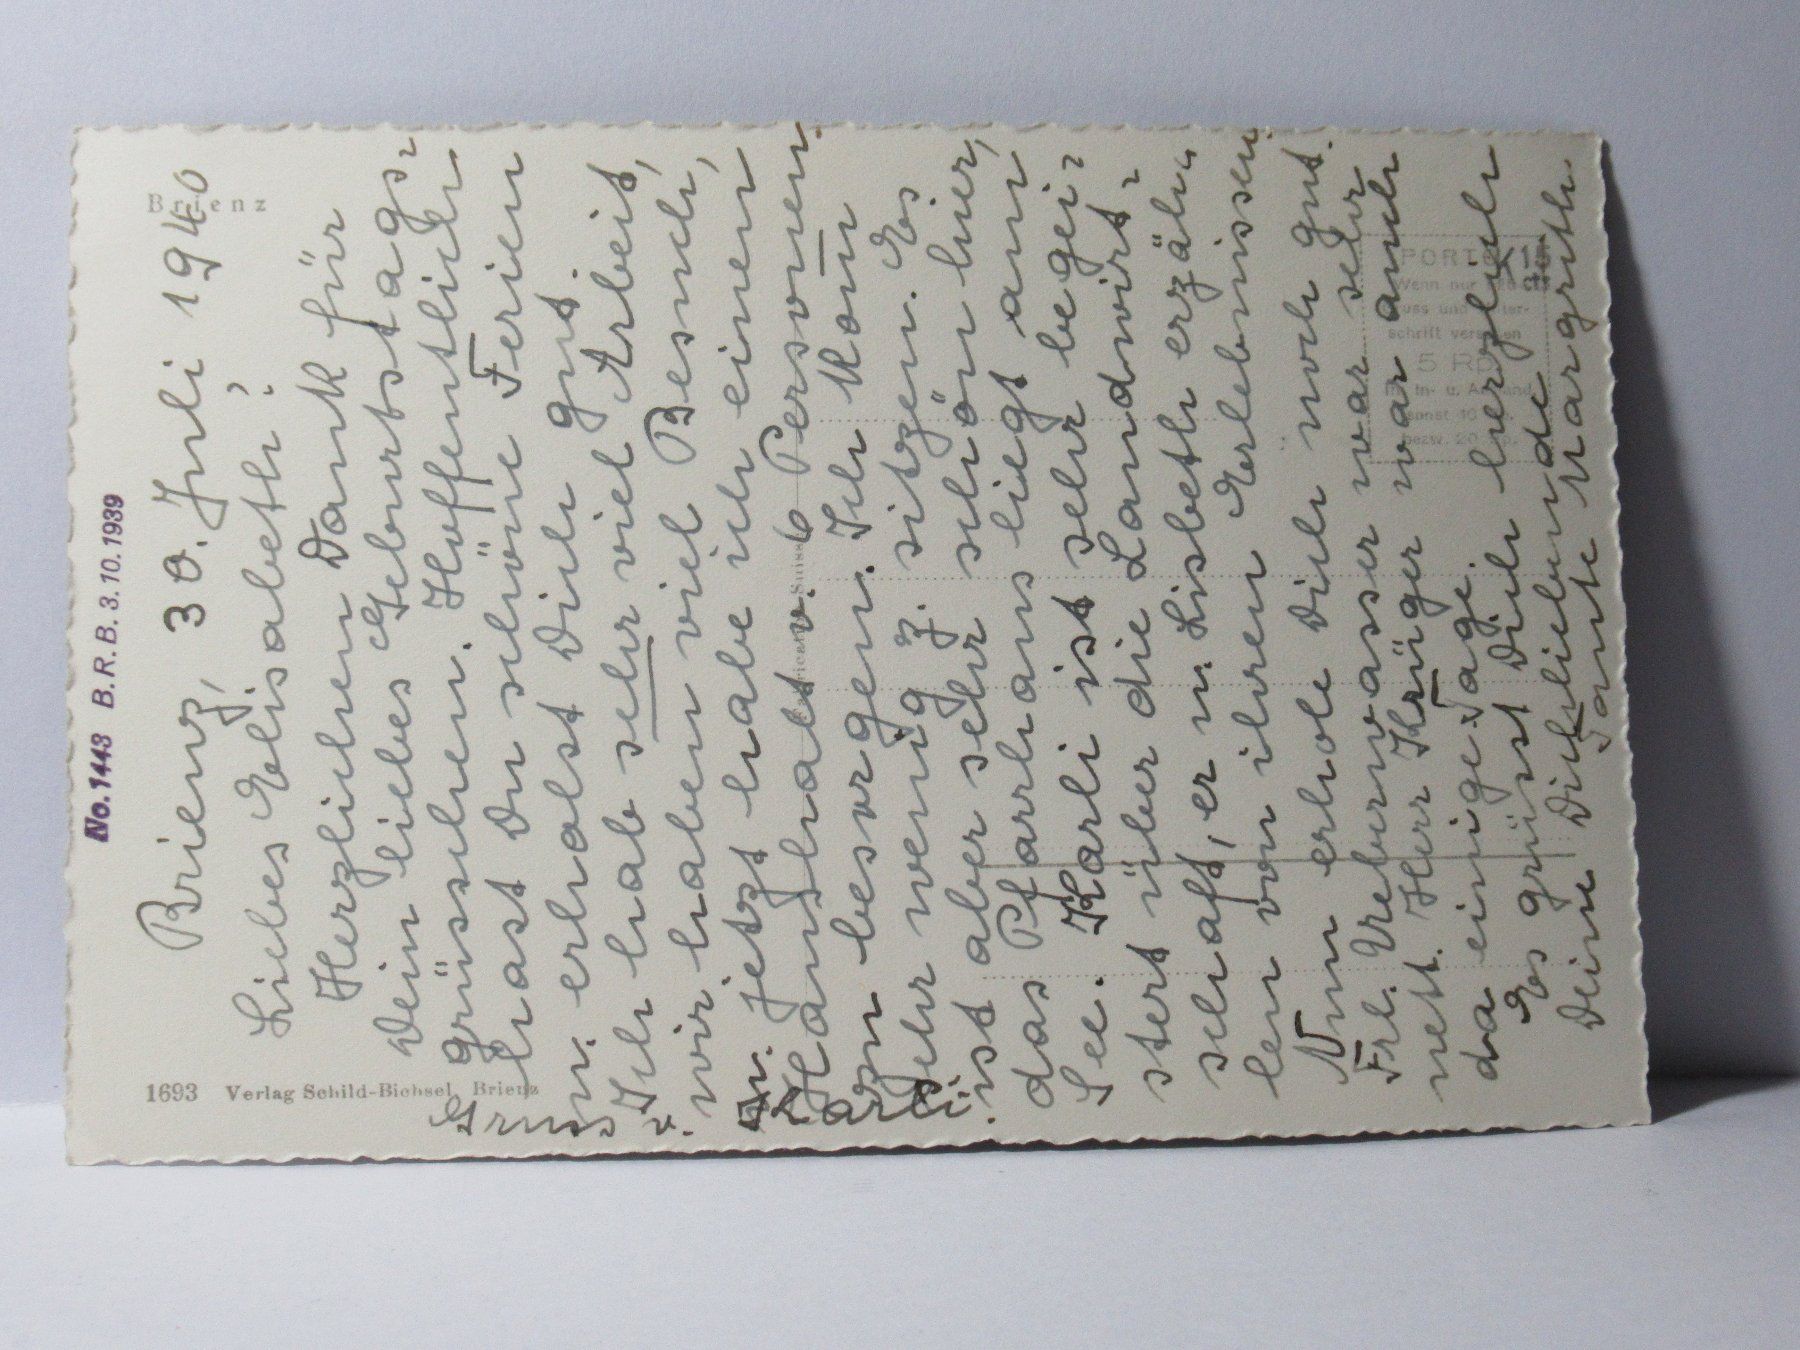 No. 1443 B. R. B. 3. 10. 1939
Brienz
Brienz, 30. Juli 1940
Liebes Elisabeth!
Herzlichen Dank für
Dein liebes Geburtstags-
grüsschen. Hoffentlich
hast Du schöne Ferien
u. erholst Dich gut.
Ich hab sehr viel Arbeit,
wir haben viel Besuch,
u. jetzt habe ich einen
Haushalt v. 6 Personen
zu besorgen. Ich kom
sehr wenig z. sitzen. Es
ist aber sehr schön hier,
das Pfarrhaus liegt am
See. Karli ist sehr begei-
stert über die Landwirt-
schaft, er u. Lisbeth erzäh-
len von ihren Erlebnissen.
Nun erhole Dich noch gut.
Frl. Uebernwasser war sehr
nett. Herr Krüger war auch
da einige Tage.
Es grüsst Dich herzlich
Deine Dich liebende
Tante Margrith.
Gruss
v.
Karli.
1693 Verlag Schild-Bichsel, Brienz
PORTO
Wenn nur
schrift versehen
5 Rp.
In- u. Ausland
sonst 10 Rp.
bezw. 20 Rp.